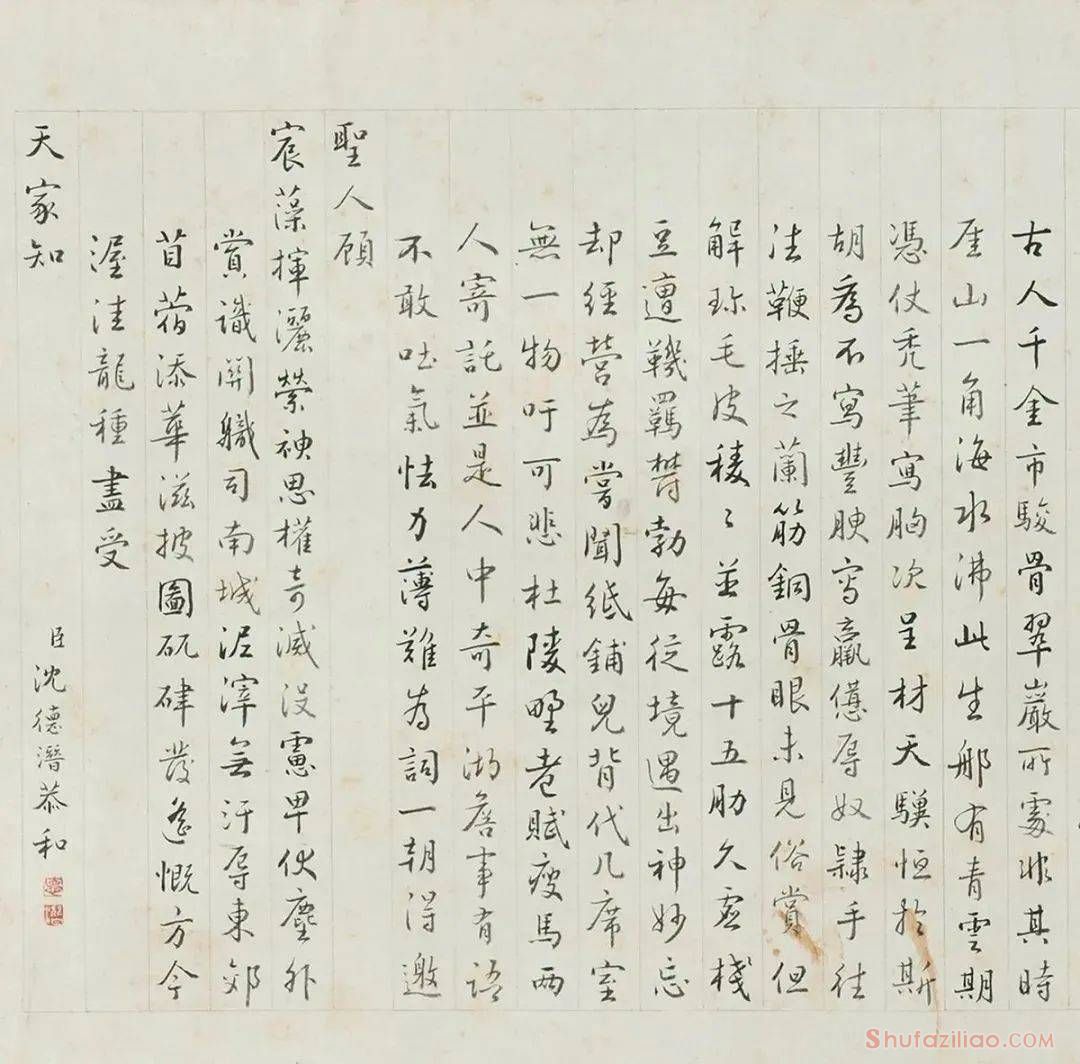 古人千金市駿骨翠巖所處非其時
厓山一角海水沸此生那有青雲期
憑仗禿筆寫胸次呈材天驥恒於斯
胡為不寫豐腴寫羸憊辱奴隸手往
往鞭捶之蘭筋銅骨眼未見俗賞但
解珎毛皮稜〻並露十五肋久乏棧
豆遭鞿羈欝勃每從境遇出神妙忘
却經營為嘗聞紙鋪兒背代几席室
無一物吁可悲杜陵野老賦瘦馬兩
人寄託並是人中奇平湖詹事有語
不敢吐氣怯力薄難為詞一朝得邀
聖人顧
宸藻揮灑縈神思權奇滅没慮甲伏塵外
賞識關職司南城泥滓無汙辱東郊
苜蓿添華滋披圖矶硉發遙慨方今
渥洼龍種盡受
天家知
臣沈德潛恭和
Shufaziliao.COM